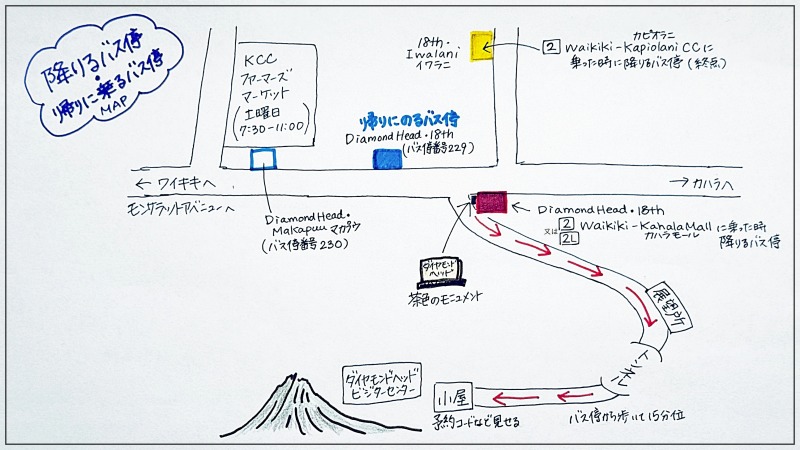 降りるバス停
・
帰りに乗るバス停
MAP
KCC
ファーマーズ
マーケット
(土曜日
7:30-11:00)
18th・
Iwalani
イワラニ
カピオラニ
2 Waikiki-Kapiolani CCに
乗った時に降りるバス停(終点)
帰りにのるバス停
Diamond Head・18th
(バス停番号229)
← ワイキキへ
→ カハラへ
モンサラットアベニューへ
Diamond Head・
Makapuu マカプウ
(バス停番号230)
Diamond Head・18th
又は 2 2L Waikiki-Kahala Mall に乗った時
カハラモール 降りるバス停
ダイヤモンド
ヘッド
茶色のモニュメント
展望所
トンネル
ダイヤモンドヘッド
ビジターセンター
小屋
予約コードなど見せる
バス停から歩いて15分位